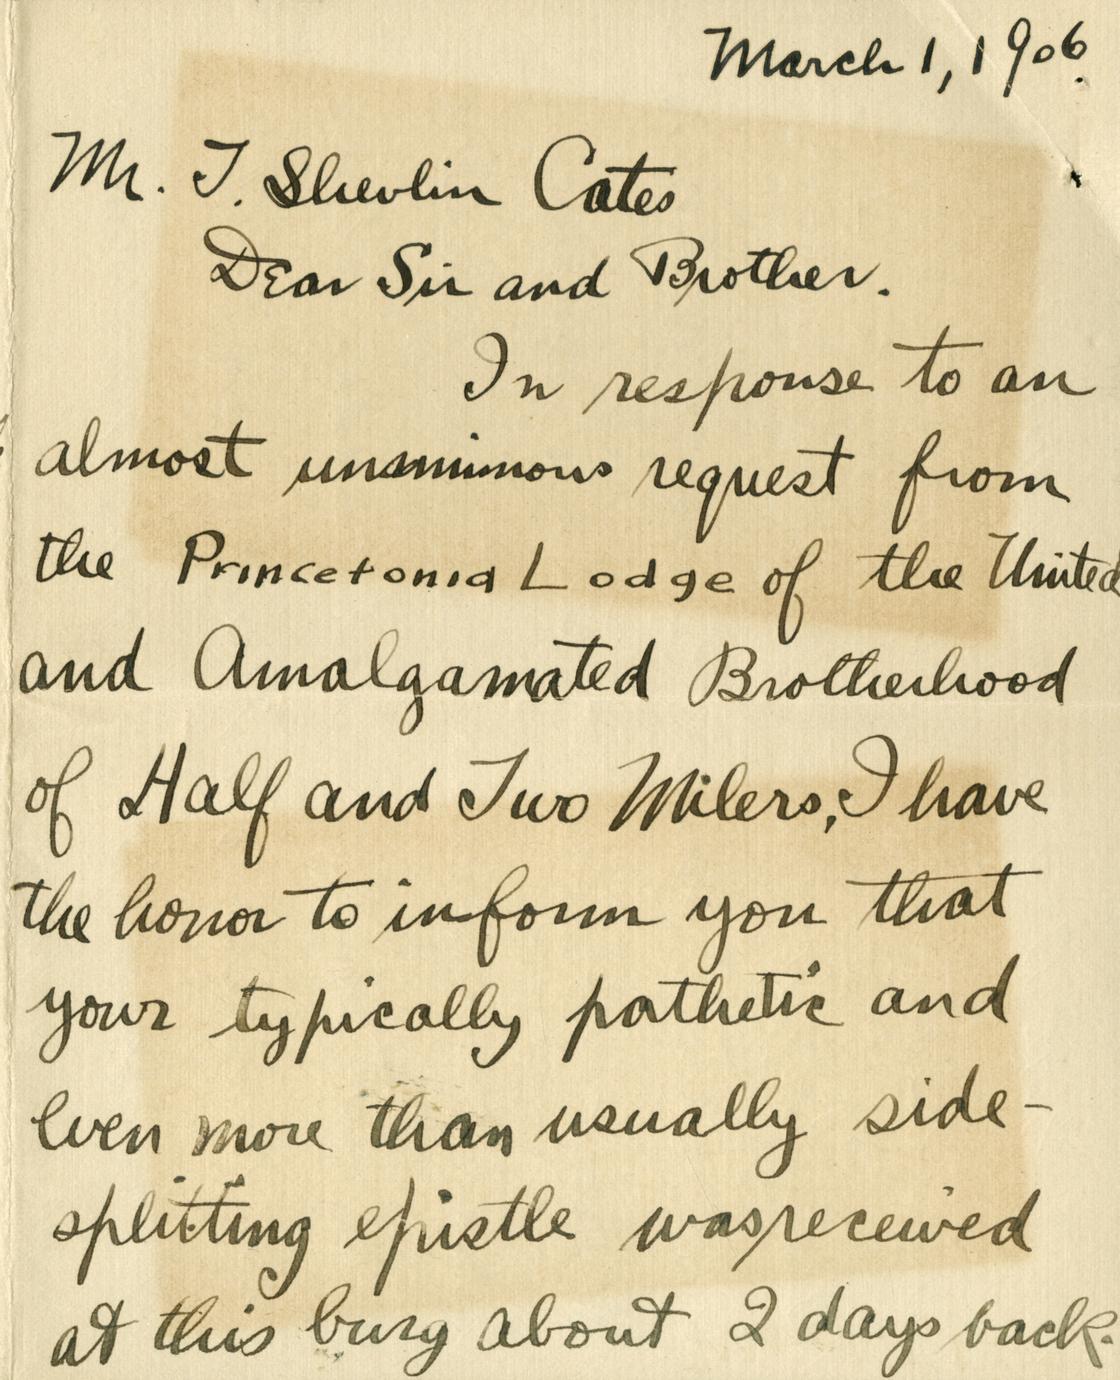 March 1, 1906.
Mr. T. Shevlin Cates
Dear Sir and Brother.
In response to an
almost unanimous request from
the Princetonia Lodge of the United
and Amalgamated Brotherhood
of Half and Two Milers, I have
the honor to inform you that
your typically pathetic and
even more than usually side-
splitting epistle was received
at this burg about 2 days back.